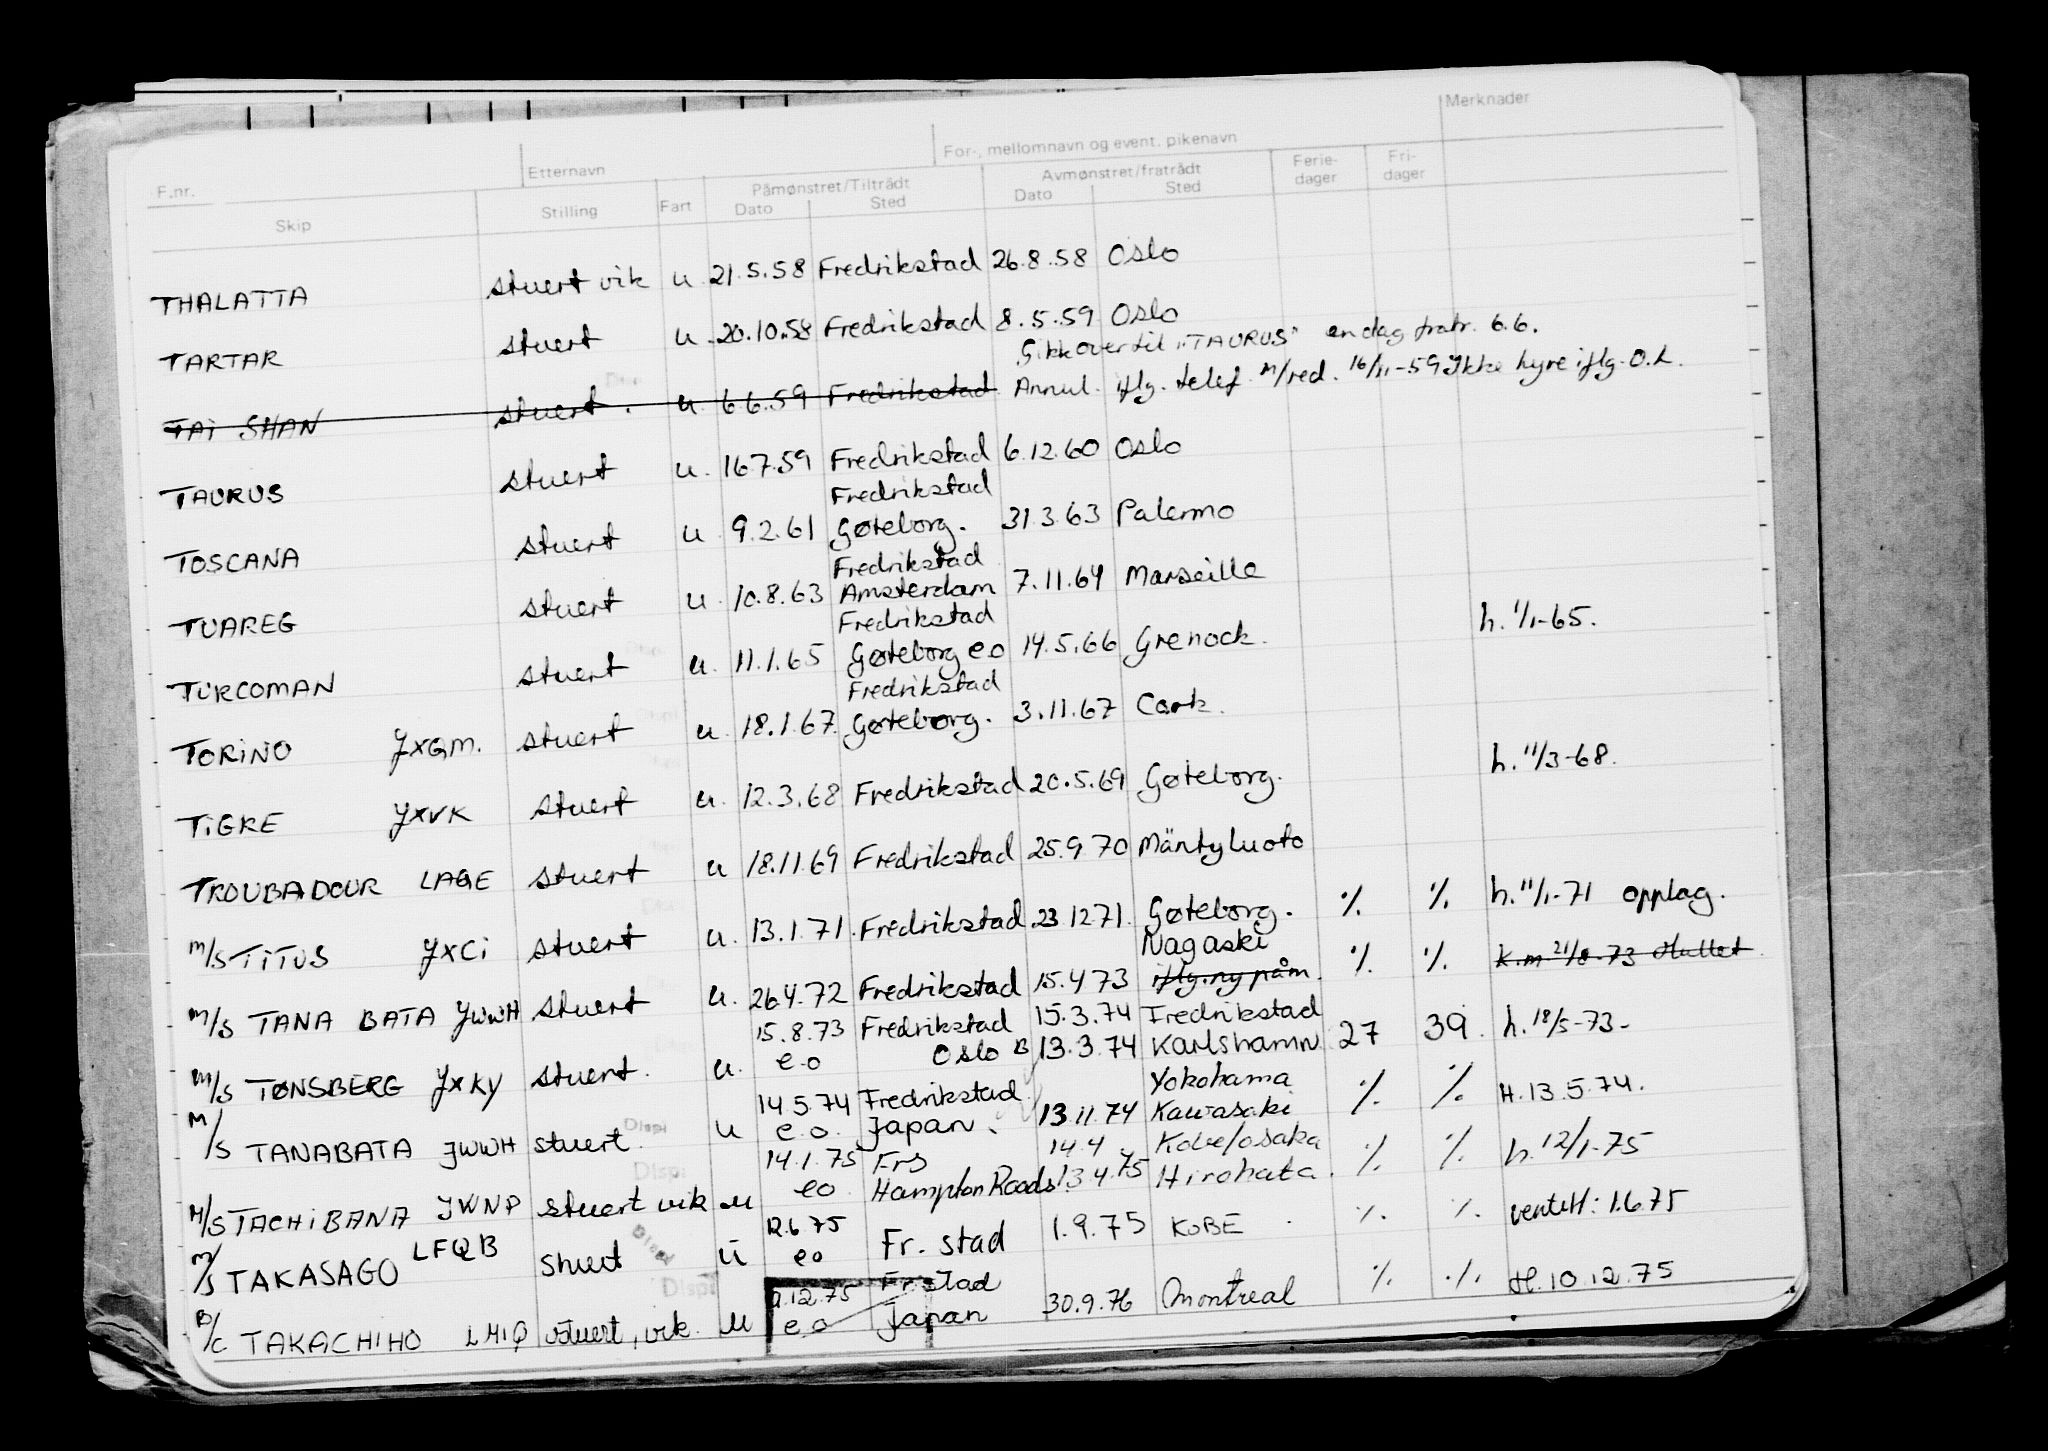 F.nr. Etternavn For-, mellomnavn og event. pikenavn Merknader
Skip Stilling Fart Påmønstret/Tiltrådt Dato Sted Avmønstret/fratrådt Dato Sted Ferie-dager Fri-dager
THALATTA stuert vik u 21.5.58 Fredrikstad 26.8.58 Oslo
TARTAR stuert u 20.10.58 Fredrikstad 8.5.59 Oslo
Gikk over til "TAURUS" en dag fratr. 6.6.
TAI SHAN stuert. u 6.6.59 Fredrikstad Annul. iflg. telef. m/red. 16/11-59 Ikke hyre iflg. O.L.
TAURUS stuert u. 16.7.59 Fredrikstad 6.12.60 Oslo
Fredrikstad
TOSCANA stuert u 9.2.61 Gøteborg. 31.3.63 Palermo
Fredrikstad
TUAREG stuert u. 10.8.63 Amsterdam 7.11.64 Marseille
Fredrikstad
TURCOMAN stuert u. 11.1.65 Gøteborg e.o 14.5.66 Grenock. h. 1/1-65.
Fredrikstad
TORINO JXGM. stuert u. 18.1.67 Gøteborg. 3.11.67 Cork.
TIGRE JXVK stuert u. 12.3.68 Fredrikstad 20.5.69 Gøteborg. h. 11/3-68.
TROUBADOUR LAGE stuert u 18.11.69 Fredrikstad 25.9.70 Mäntyluoto
M/S TITUS JXCI stuert u. 13.1.71. Fredrikstad 23.12.71. Gøteborg. ./. ./. h. 11/1-71 opplag.
Nagaski
M/S TANA BATA JWWH stuert u. 26.4.72 Fredrikstad 15.4.73 iflg. ny påm. ./. ./. k.m 21/8-73
15.8.73 Fredrikstad 15.3.74 Fredrikstad
M/S TØNSBERG JXKY stuert. u. e.o Oslo B 13.3.74 Karlshamn 27 39. h. 18/5-73-
14.5.74 Fredrikstad Yokohama
M/S TANABATA JWWH stuert. u e.o. Japan. 13.11.74 Kawasaki ./. ./. H. 13.5.74.
14.1.75 Frs 14.4 Kobe/Osaka
M/S TACHIBANA JWNP stuert vik u eo. Hampton Roads 13.4.75 Hirohata. ./. ./. h. 12/1-75
12.6.75
M/S TAKASAGO LFQB stuert u eo Fr. stad 1.9.75 KOBE ./. ./. ventet: 1.6.75
9.12.75 Fr.stad
B/C TAKACHIHO LMIQ stuert, vik. u e.o Japan 30.9.76 Montreal ./. ./. H. 10.12.75